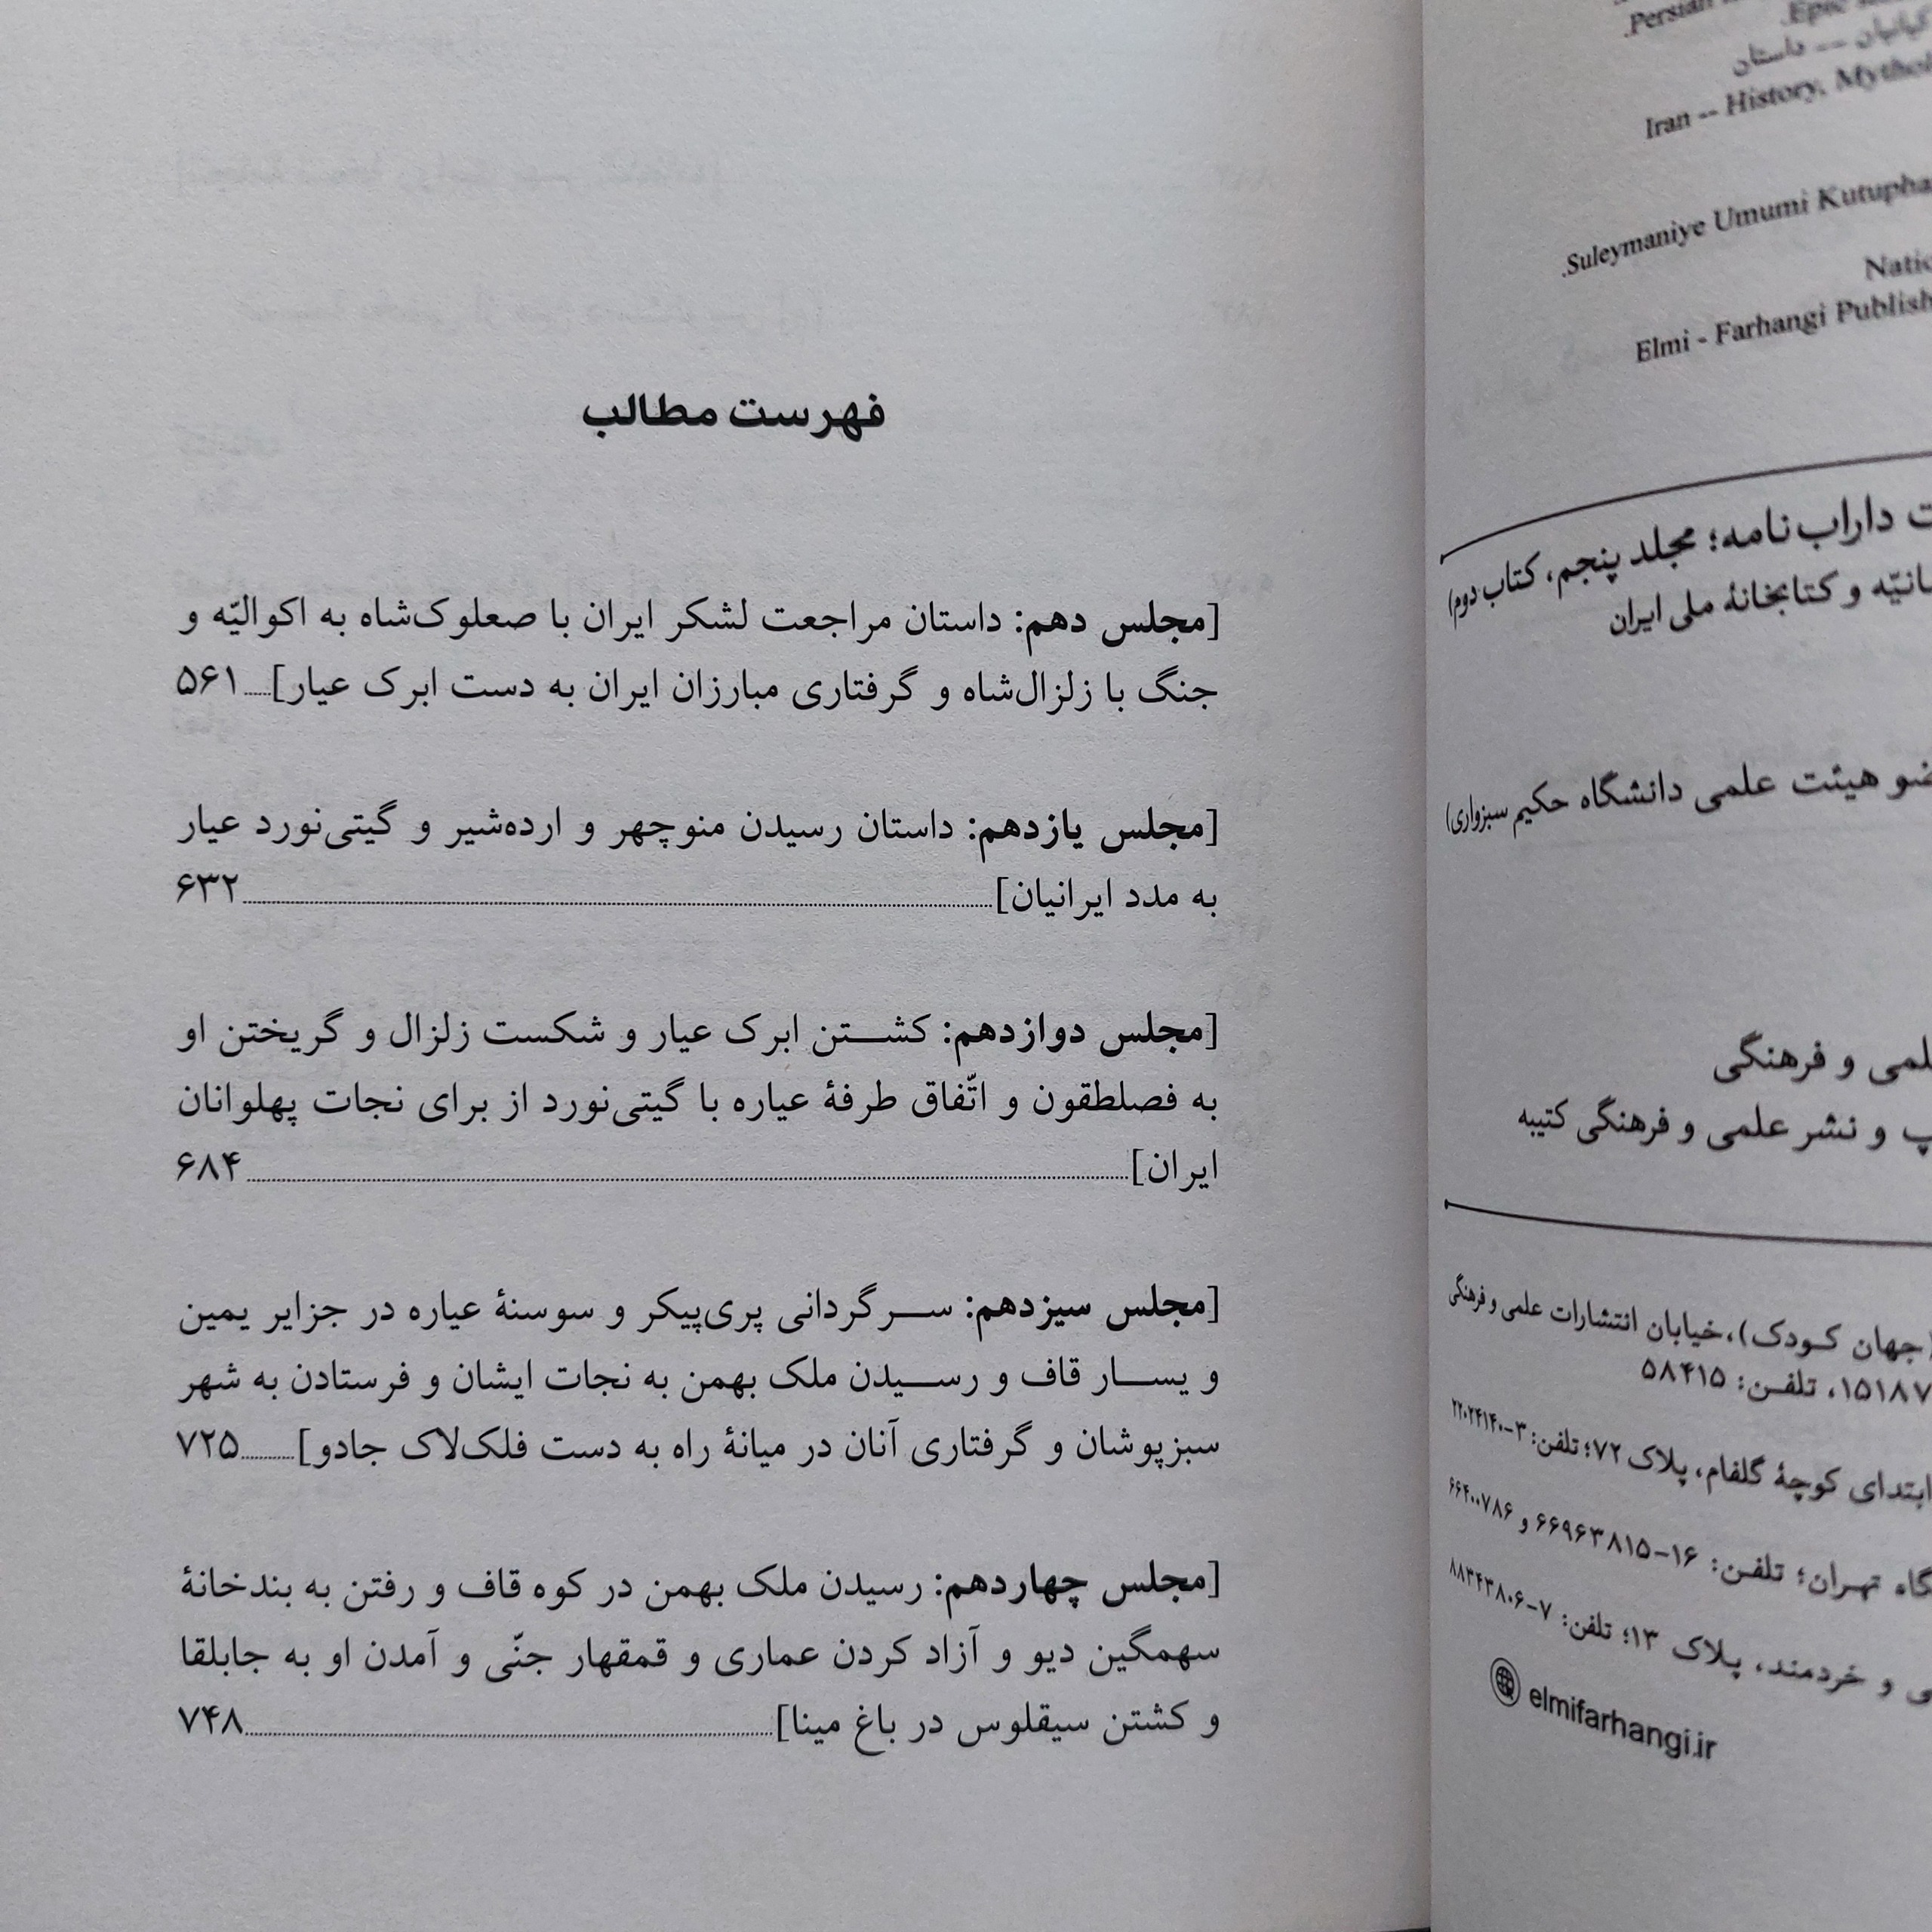 Persian
.Epic
کیانیان -- داستان
Iran -- History,
.Suleymaniye Umumi
Elmi - Farhangi
داراب‌نامه؛ مجلد پنجم، کتاب دوم)
و کتابخانهٔ ملی ایران
هیئت علمی دانشگاه حکیم سبزواری)
و فرهنگی
و نشر علمی و فرهنگی کتیبه
(جهان کودک)، خیابان انتشارات علمی و فرهنگی
۱۵۱۸۷، تلفن: ۵۸۴۱۵
ابتدای کوچهٔ گلفام، پلاک ۷۲؛ تلفن: ۳-۲۲۰۲۴۱۴۰
تهران؛ تلفن: ۱۶-۶۶۹۶۳۸۱۵ و ۶۶۴۰۰۷۸۶
و خردمند، پلاک ۱۳؛ تلفن: ۷-۸۸۳۴۳۸۰۶
elmifarhangi.ir
فهرست مطالب
[مجلس دهم: داستان مراجعت لشکر ایران با صعلوک‌شاه به اکوالیّه و
جنگ با زلزال‌شاه و گرفتاری مبارزان ایران به دست ابرک عیار] ۵۶۱
[مجلس یازدهم: داستان رسیدن منوچهر و ارده‌شیر و گیتی‌نورد عیار
به مدد ایرانیان] ۶۳۲
[مجلس دوازدهم: کشتن ابرک عیار و شکست زلزال و گریختن او
به فصلطقون و اتّفاق طرفهٔ عیاره با گیتی‌نورد از برای نجات پهلوانان
ایران] ۶۸۴
[مجلس سیزدهم: سرگردانی پری‌پیکر و سوسنهٔ عیاره در جزایر یمین
و یسار قاف و رسیدن ملک بهمن به نجات ایشان و فرستادن به شهر
سبزپوشان و گرفتاری آنان در میانهٔ راه به دست فلک‌لاک جادو] ۷۲۵
[مجلس چهاردهم: رسیدن ملک بهمن در کوه قاف و رفتن به بندخانهٔ
سهمگین دیو و آزاد کردن عماری و قمقهار جنّی و آمدن او به جابلقا
و کشتن سیقلوس در باغ مینا] ۷۴۸